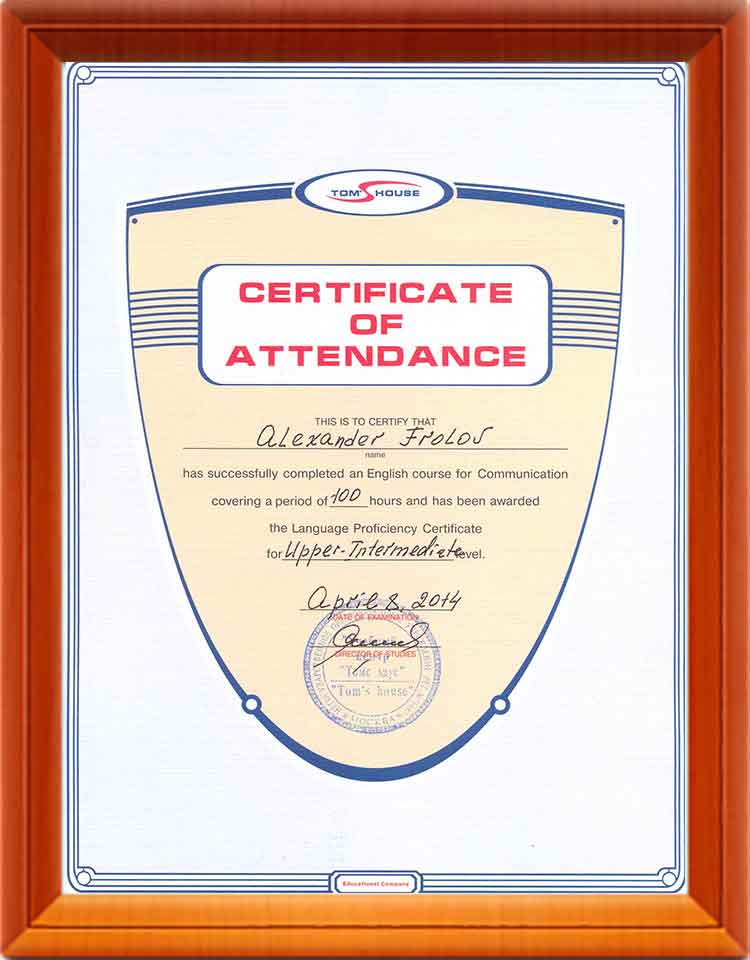 TOM'S HOUSE
CERTIFICATE
OF
ATTENDANCE
THIS IS TO CERTIFY THAT
Alexander Frolov
name
has successfully completed an English course for Communication
covering a period of 100 hours and has been awarded
the Language Proficiency Certificate
for Upper-Intermediate level.
April 8, 2014
DATE OF EXAMINATION
DIRECTOR OF STUDIES
"Томс хаус"
"Tom's house"
МОСКВА
Educational Company